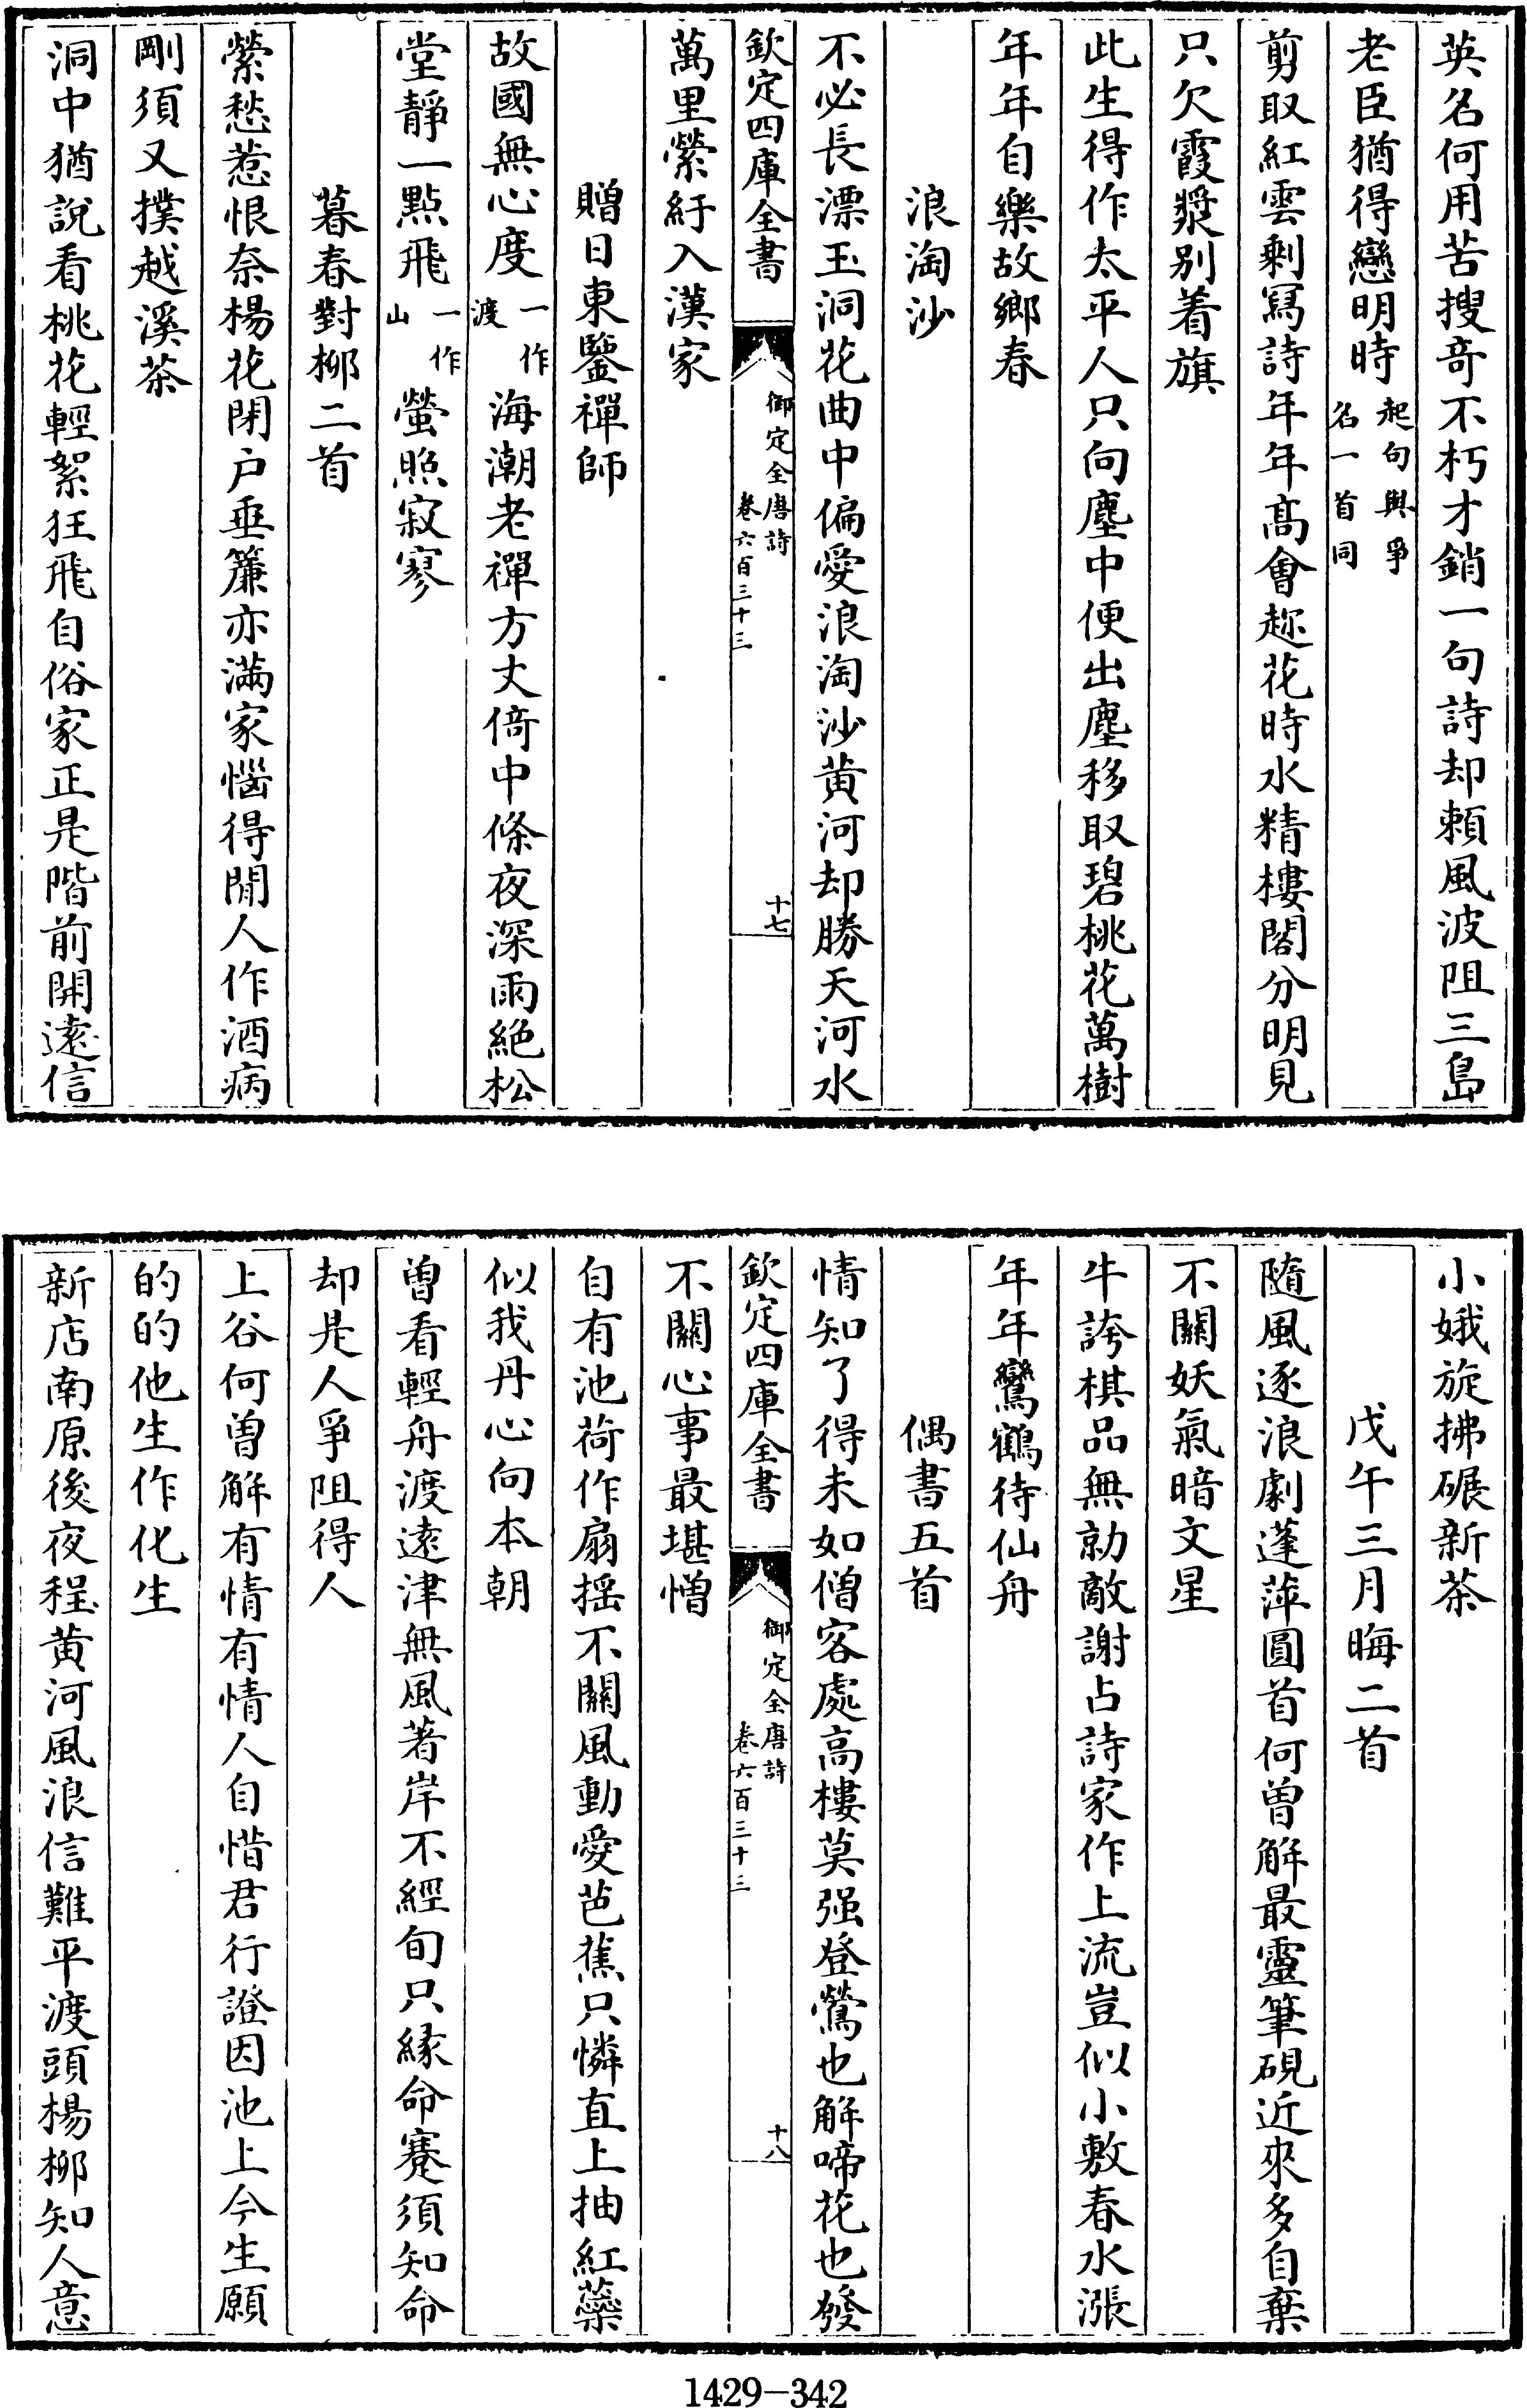 英名何用苦搜奇不朽才銷一句詩却頼風波阻三島
老臣猶得戀明時起句與爭名一首同
剪取紅雲剩寫詩年年髙會趂花時水精樓閣分明見
只欠霞漿别着旗
此生得作太平人只向塵中便出塵移取碧桃花萬樹
年年自樂故鄉春
浪淘沙
不必長漂玉洞花曲中偏愛浪淘沙黄河却勝天河水
欽定四庫全書
御定全唐詩
卷六百三十三
十七
萬里縈紆入漢家
贈日東鑒禪師
故國無心度一作渡海潮老禪方丈倚中條夜深雨絶松
堂靜一點飛一作山螢照寂寥
暮春對柳二首
縈愁惹恨奈楊花閉户垂簾亦滿家惱得閒人作酒病
剛須又撲越溪茶
洞中猶說看桃花輕絮狂飛自俗家正是階前開遠信
小娥旋拂碾新茶
戊午三月晦二首
隨風逐浪劇蓬萍圓首何曽解最靈筆硯近來多自棄
不關妖氣暗文星
牛誇棋品無勍敵謝占詩家作上流豈似小敷春水漲
年年鸞鶴待仙舟
偶書五首
情知了得未如僧客處高樓莫强登鶯也解啼花也發
欽定四庫全書
御定全唐詩
卷六百三十三
十八
不關心事最堪憎
自有池荷作扇揺不關風動愛芭蕉只憐直上抽紅蘂
似我丹心向本朝
曽看輕舟渡遠津無風著岸不經旬只縁命蹇須知命
却是人爭阻得人
上谷何曽解有情有情人自惜君行證因池上今生願
的的他生作化生
新店南原後夜程黄河風浪信難平渡頭楊柳知人意
1429-342